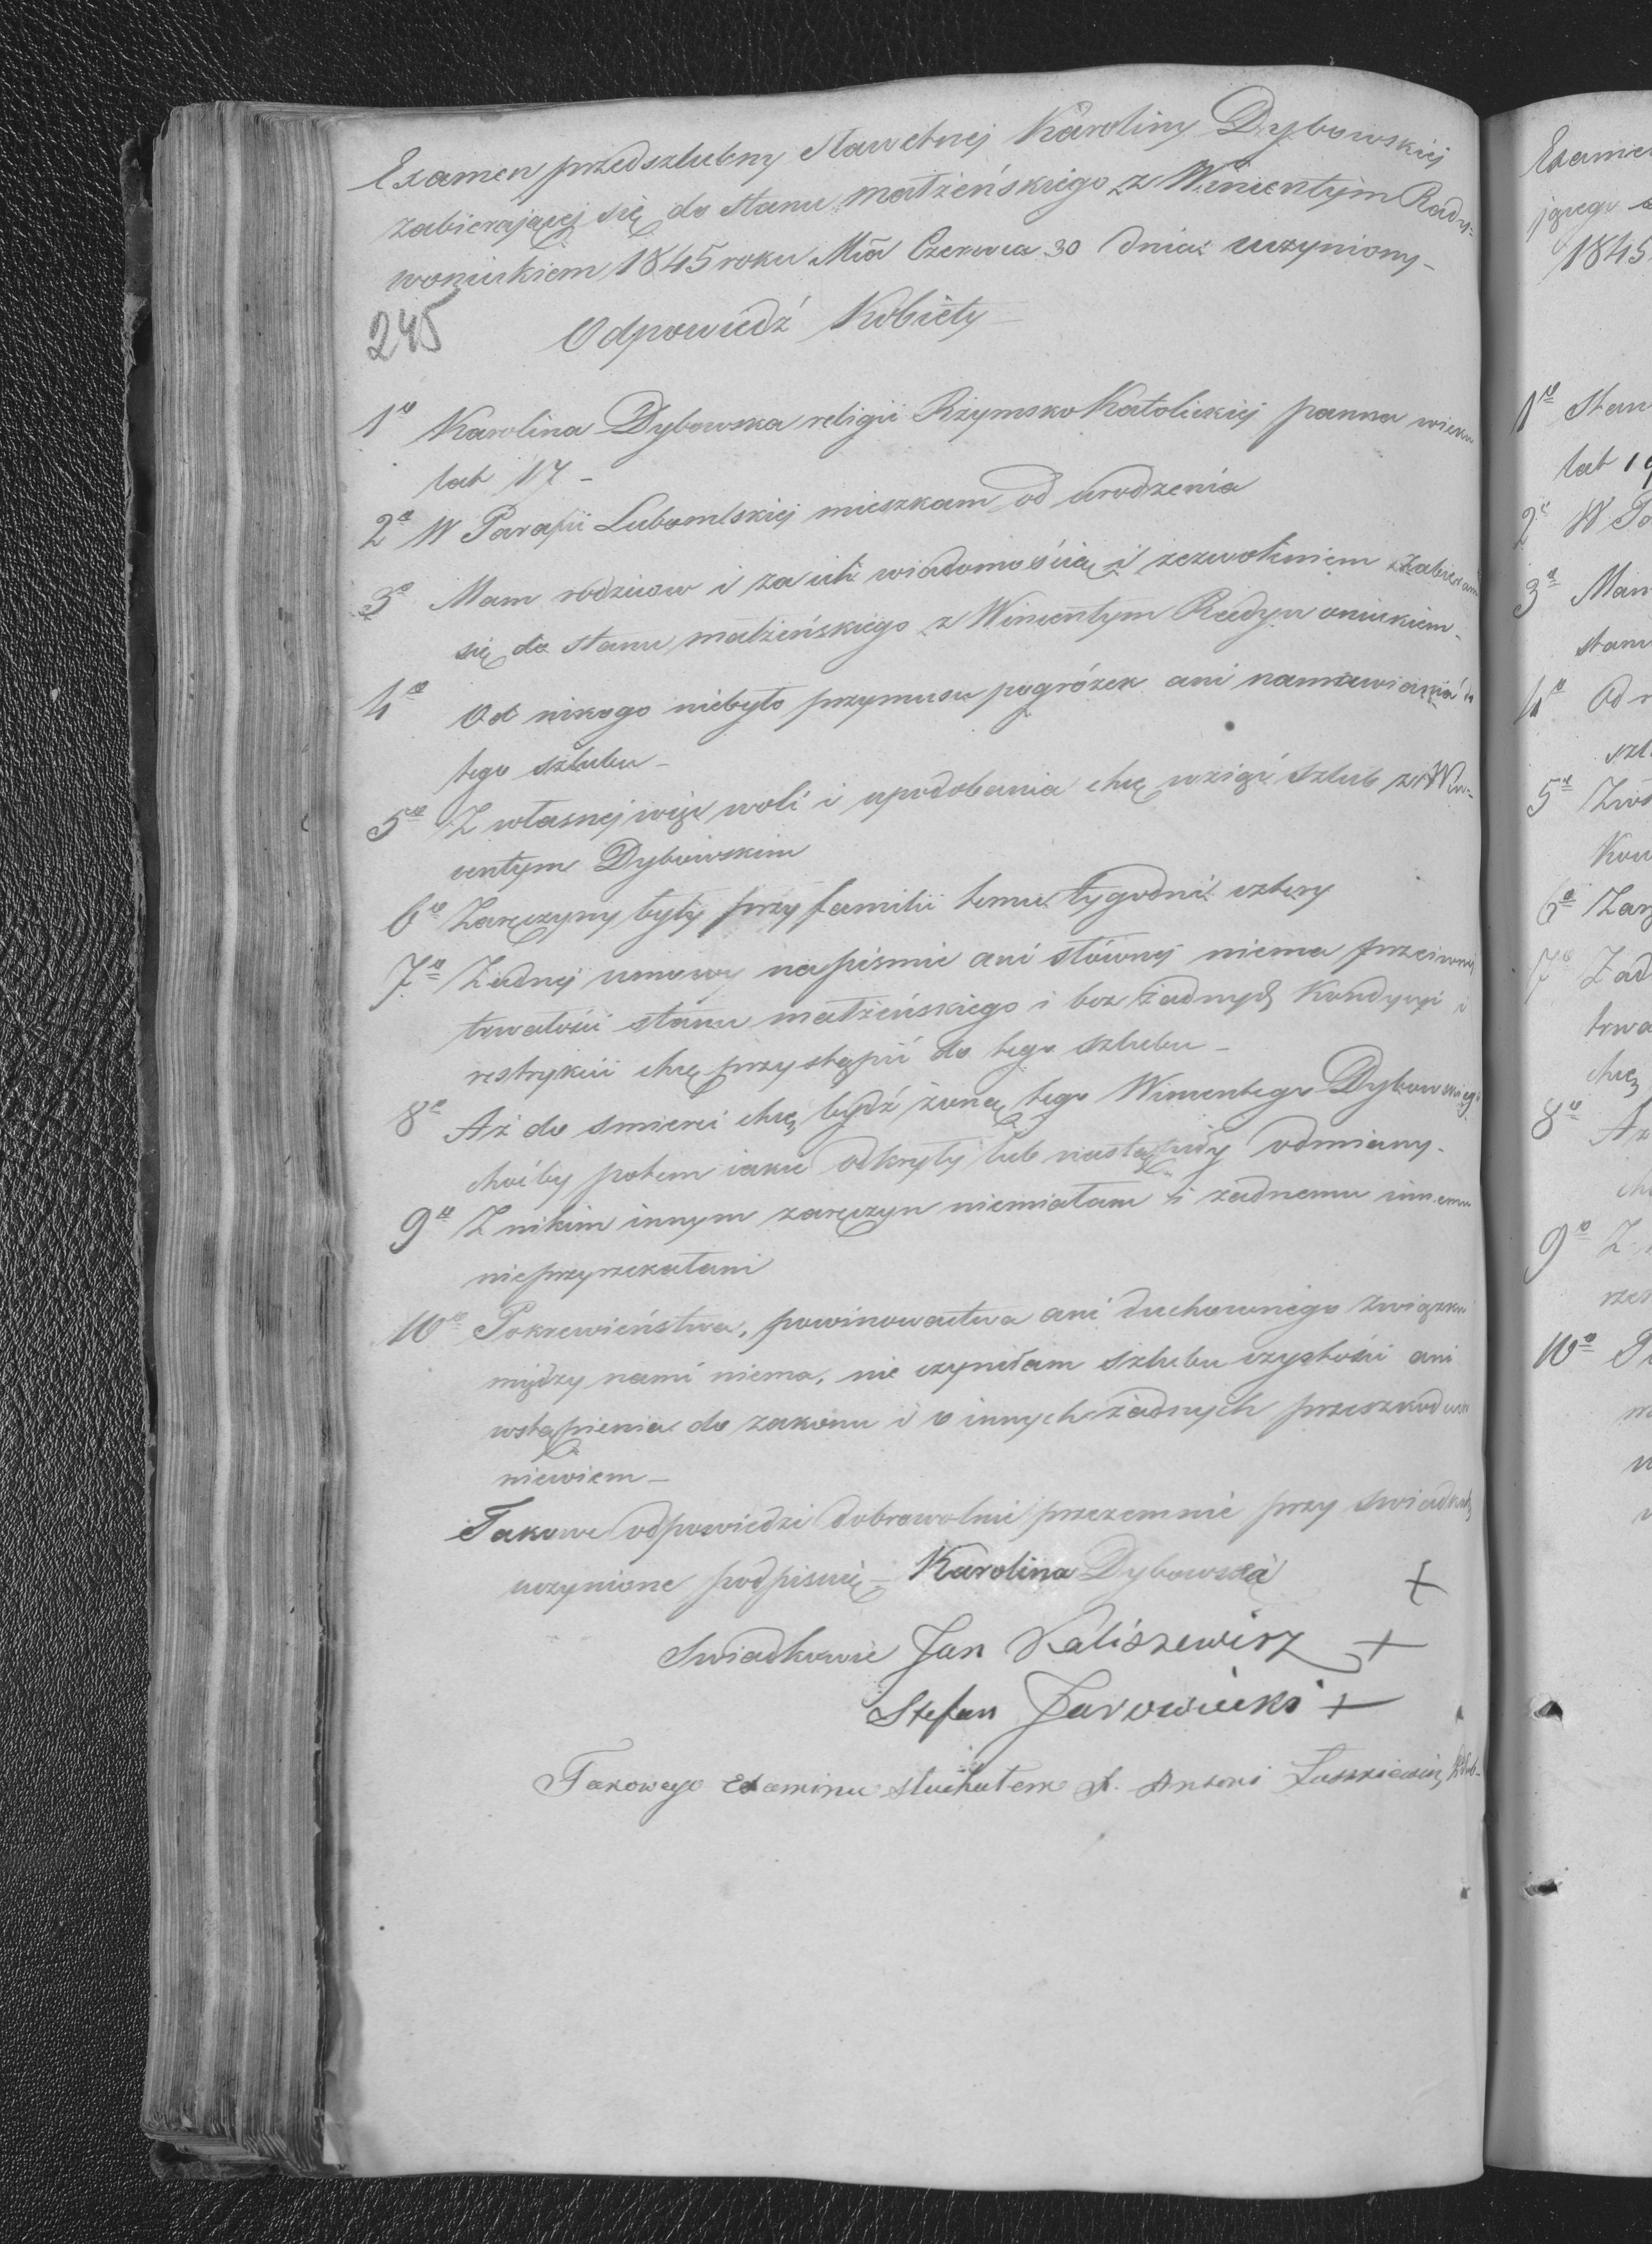 Examen przedszlubny sławetnej Karoliny Dybowskiej
zabierającej się do stanu małżeńskiego z Wincentym Rady-
woniukiem 1845 roku Mca Czerwca 30 dnia uczyniony-
245 Odpowiedź Kobiety
1o Karolina Dybowska religii Rzymsko Katolickiej panna wieku
lat 17 -
2o W Parafii Lubomlskiej mieszkam od urodzenia
3o Mam rodzicow i za ich wiadomością i zezwoleniem zabieram
się do stanu małżeńskiego z Wincentym Radywoniukiem-
4o Od nikogo niebyło przymusu pogróżek ani namawiania do
tego szlubu-
5o Z własnej więc woli i upodobania chcę wziąć szlub z Win-
centym Dybowskim
6o Zaręczyny były przy familii temu tygodni cztery
7o Żadnej umowy napismie ani słównej niema przeciwnej
trwałości stanu małżeńskiego i bez żadnych kondycyi i
restrykcii chcę przystąpić do tego szlubu-
8o Aż do smierci chcę bydź żoną tego Wincentego Dybowskiego
choćby potem iakie odkryły lub nastąpiły odmiany-
9o Z nikim innym zaręczyn niemiałam i żadnemu innemu
nieprzyrzekałam
10o Pokrewieństwa, powinowactwa ani duchownego związku
między nami niema, nie czyniłam szlubu czystości ani
wstąpienia do zakonu i o innych żadnych przeszkodach
niewiem-
Takowe odpowiedzi dobrowolnie przezemnie przy swiadkach
uczynione podpisuię- Karolina Dybowska +
Swiadkowie Jan Kaliszewicz +
Stefan Jarowicki +
Takowego Examinu słuchałem X. Antoni
Examen
jącego
1845
1o Stan
lat 19
2o W Pa
3o Mam
stanu
4o Od n
szl
5o Z wł
6o Zar
7o Żad
trwa
chcę
8o Aż
9o Z
10o